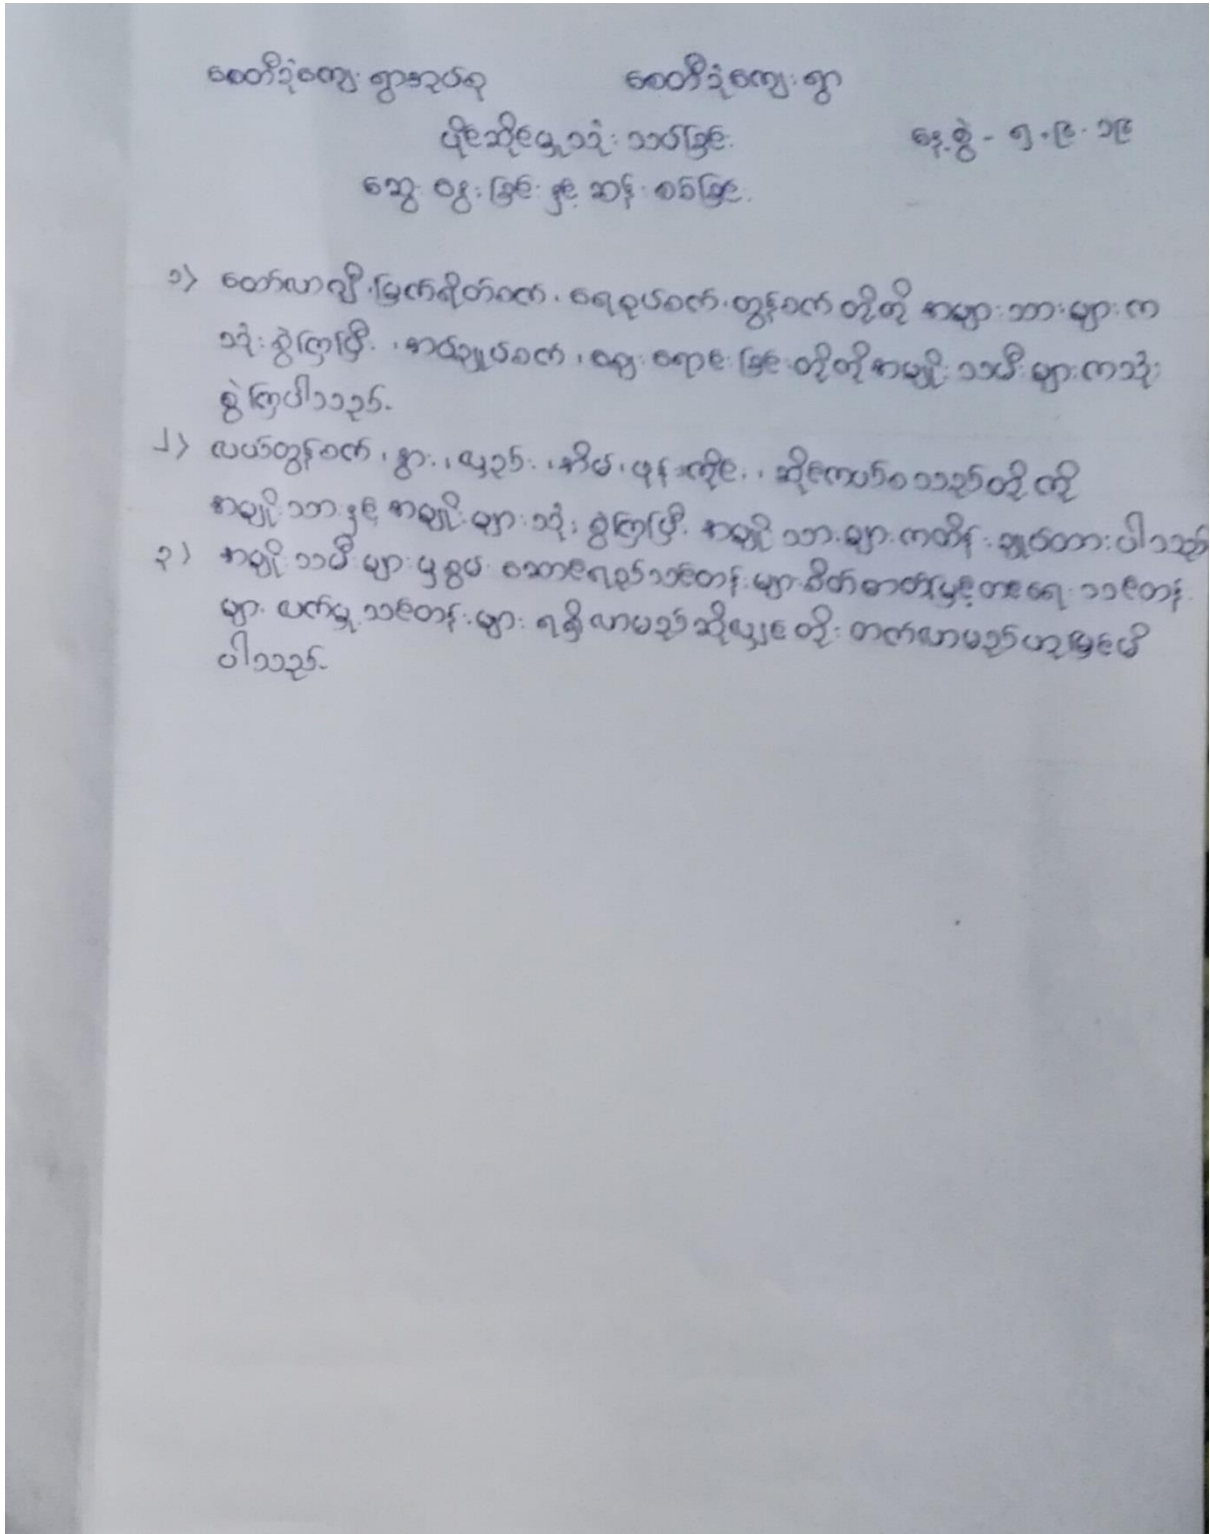 စေတီဒုံကျေးရွာအုပ်စု စေတီဒုံကျေးရွာ
ပိုင်ဆိုင်မှုသုံးသပ်ခြင်း နေ့စွဲ - ၅.၉.၁၉
ဆွေးနွေးခြင်းနှင့်ဆန်းစစ်ခြင်း
၁) တော်လာဂျီ၊ မြက်ရိတ်စက်၊ ရေစုပ်စက်၊ ထွန်စက်တို့ကို အမျိုးသားများက
သုံးစွဲကြပြီး၊ အပ်ချုပ်စက်၊ ဈေးရောင်းခြင်းတို့ကို အမျိုးသမီးများကသုံး
စွဲကြပါသည်။
၂) လယ်ထွန်စက်၊ နွား၊ လှည်း၊ အိမ်၊ ဖုန်းကိုင်၊ ဆိုင်ကယ်စသည်တို့ကို
အမျိုးသားနှင့်အမျိုးများသုံးစွဲကြပြီး အမျိုးသားများကထိန်းချုပ်ထားပါသည်
၃) အမျိုးသမီးများမှစွမ်းဆောင်ရည်သင်တန်းများစိတ်ဓာတ်မြှင့်တင်ရေးသင်တန်း
များ လက်မှုသင်တန်းများ ရရှိလာမည်ဆိုလျှင်တိုးတက်လာမည်ဟုမြင်မိ
ပါသည်။